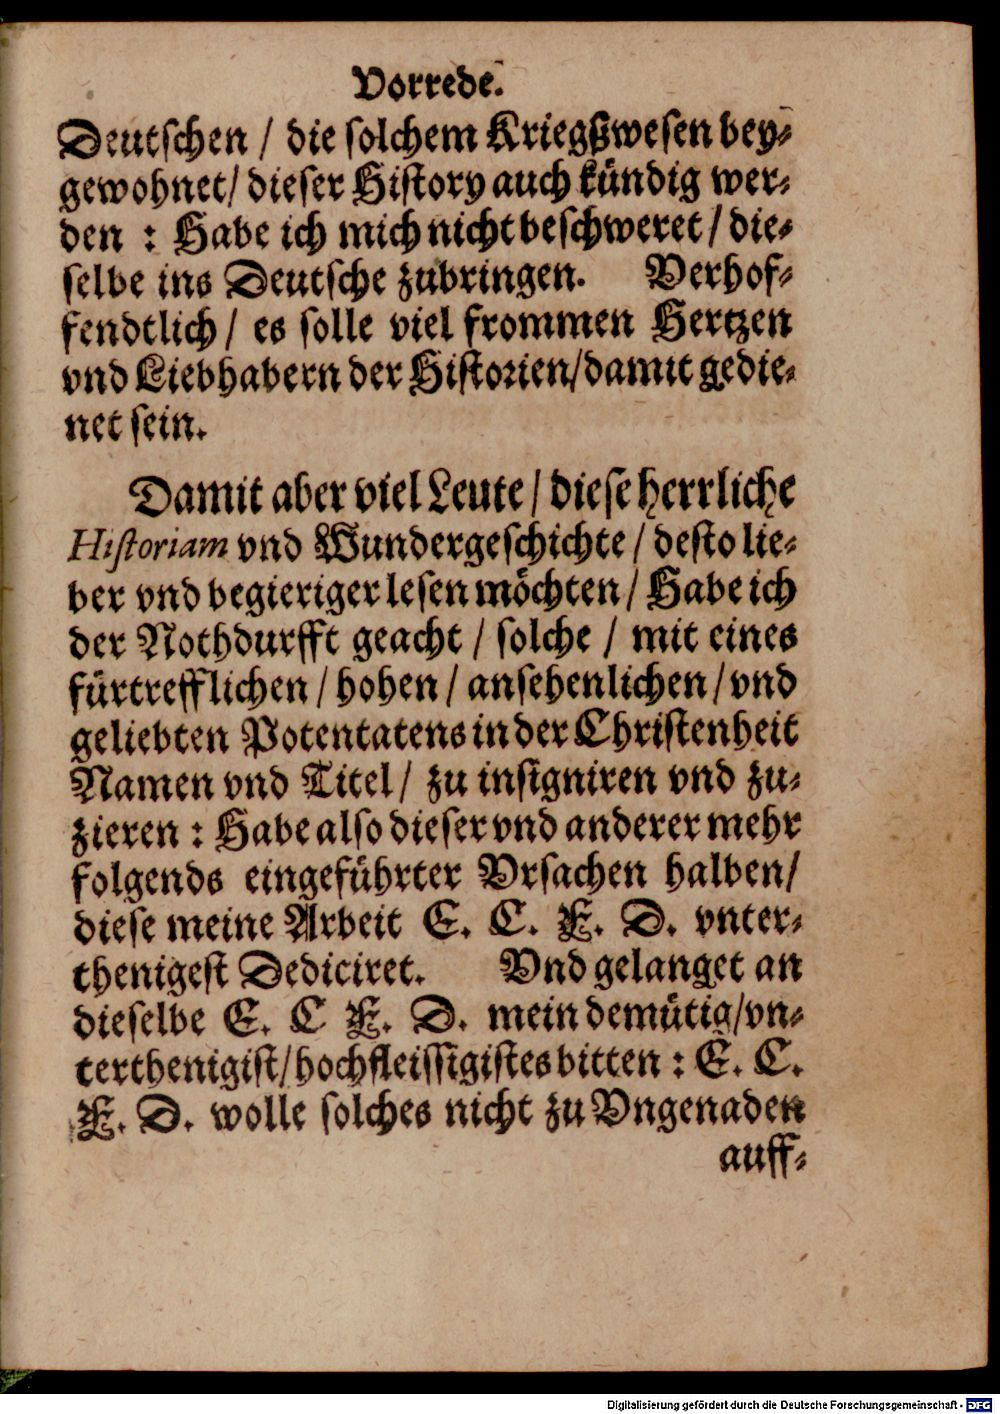 Vorrede.
Deutschen / die ſolchem Kriegßweſen bey⸗
gewohnet/ dieſer Hiſtory auch kündig wer⸗
den : Habe ich mich nicht beſchweret / die⸗
ſelbe ins Deutſche zubringen. Verhof⸗
fendtlich / es ſolle viel frommen Hertzen
vnd Liebhabern der Hiſtorien/damit gedie⸗
net ſein.
Damit aber viel Leute / dieſe herrliche
Hiſtoriam vnd Wundergeſchichte / deſto lie⸗
ber vnd begieriger leſen möchten / Habe ich
der Nothdurfft geacht / ſolche / mit eines
fürtrefflichen / hohen / anſehenlichen / vnd
geliebten Potentatens in der Chriſtenheit
Namen vnd Titel / zu inſigniren vnd zu⸗
zieren : Habe alſo dieſer vnd anderer mehr
folgends eingeführter Vrſachen halben/
dieſe meine Arbeit E. C. F. D. vnter⸗
thenigeſt Dediciret. Vnd gelanget an
dieſelbe E. C F. D. mein demütig/vn⸗
terthenigiſt/hochfleiſſigiſtes bitten : E. C.
F. D. wolle ſolches nicht zu Vngenaden
auff⸗
Digitalisierung gefördert durch die Deutsche Forschungsgemeinschaft - DFG